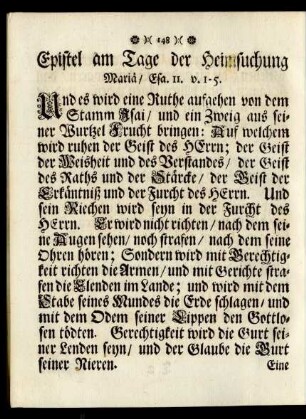 148
Epistel am Tage der Heimsuchung
Mariä/ Esa. 11. v. 1-5.
Und es wird eine Ruthe aufgehen von dem
Stamm Isai/ und ein Zweig aus sei-
ner Wurtzel Frucht bringen: Auf welchem
wird ruhen der Geist des HErrn; der Geist
der Weisheit und des Verstandes/ der Geist
des Raths und der Stärcke/ der Geist der
Erkäntniß und der Furcht des HErrn. Und
sein Riechen wird seyn in der Furcht des
HErrn. Er wird nicht richten/ nach dem sei-
ne Augen sehen/ noch strafen/ nach dem seine
Ohren hören; Sondern wird mit Gerechtig-
keit richten die Armen/ und mit Gerichte stra-
fen die Elenden im Lande; und wird mit dem
Stabe seines Mundes die Erde schlagen/ und
mit dem Odem seiner Lippen den Gottlo-
sen tödten. Gerechtigkeit wird die Gurt sei-
ner Lenden seyn/ und der Glaube die Gurt
seiner Nieren.
Eine